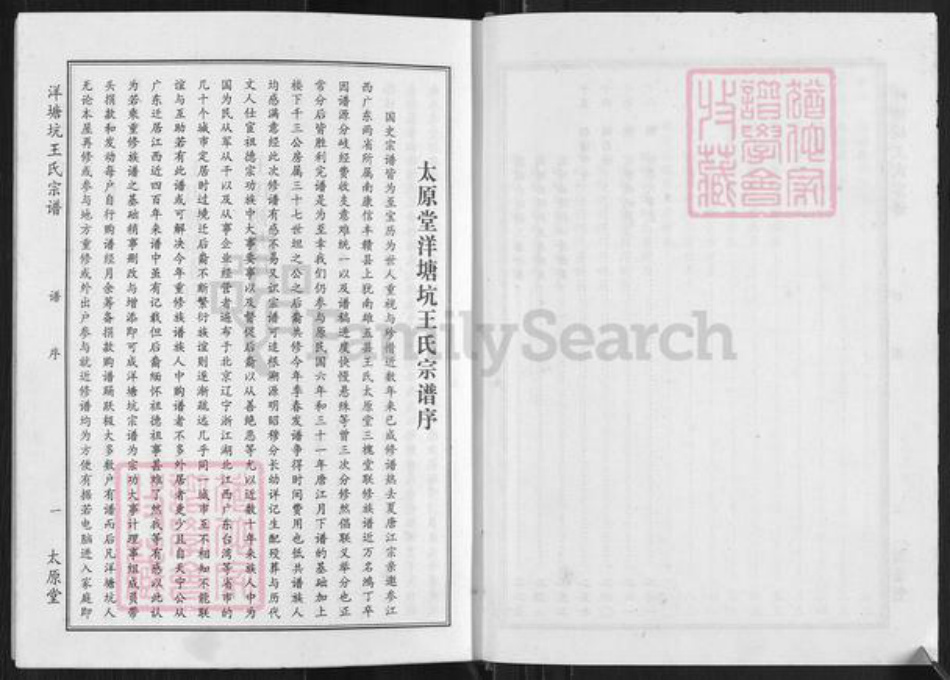 太原堂洋塘坑王氏宗谱序
国史宗谱皆为至宝历为世人重视与珍惜近数年来已成修谱热去夏唐江宗亲邀参江
西广东两省所属南康信丰赣县上犹南雄五县王氏太原堂三槐堂联修族谱近万名鸿丁卒
因谱源分岐经费收支意难统一以及谱稿进度快慢悬殊等曾三次分修然倡联又举分也正
常分后皆胜利完谱是为至幸我们仍参与原民国六年和三十一年唐江月下谱的基础加上
楼下千三公房属三十七世坦之公之后裔共修今年季春发谱争得时间费用也低共谱族人
均感满意经此次修谱有感不易又识宗谱可追根溯源明昭穆分长幼详记生配殁葬与历代
文人仕宦祖德宗功族中大事要事以及督促后裔以从善绝恶等尤以近数十年来族人中为
国为民从军从干以及从事企业经营者遍布于北京辽宁浙江湖北江西广东台湾等省市的
几十个城市定居时过境迁后裔不断繁衍族谊则逐渐疏远几乎同一城市互不相知不能联
谊与互助若有此谱或可解决今年重修族谱族人中购谱者不多外居者更少且自天宁公从
广东迁居江西近四百年来谱中虽有记载但后裔缅怀祖德祖事甚难了然我等有感以此认
为若乘重修族谱之基础稍事删改与增添即可成洋塘坑宗谱为宗功大事计理事组成员带
头捐款和发动每户自行购谱经月余筹备捐款购谱踊跃极大多数户有谱而后凡洋塘坑人
无论本屋再修或参与地方重修或外出户参与就近修谱均为方便有据若电脑进入家庭即
洋塘坑王氏宗谱
谱序
一
太原堂